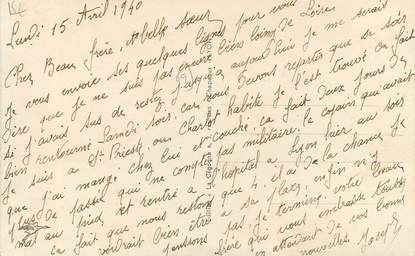 Lundi 15 Avril 1940
Cher Beau frère, et belle sœur
Je vous envoie ses quelques lignes pour vous
dire que je ne suis pas encore bien loin de Loire
Si j'avais sus de rester jusqu'a aujourd'hui je me serais
bien rentourné Samdi soir, car nous devons reparter que se soir
Je suis a St Priest, ou Charlot habité je l'est trouvé ca fait
que j'ai mangé chez lui et couché, ca fait deux jours de
plus de passé qui ne compte pas militaire, le copain qui avait
mal au pied est rentré a l'hopital a Lyon hier au soir
ca fait que nous restons que 4, il a de la chance je
voudrait bien être a sa place, enfin n'y
pensons pas, je termine, votre beau
frère qui vous embrasse tous
en attendant de vos bonnes
nouvelles. Joseph